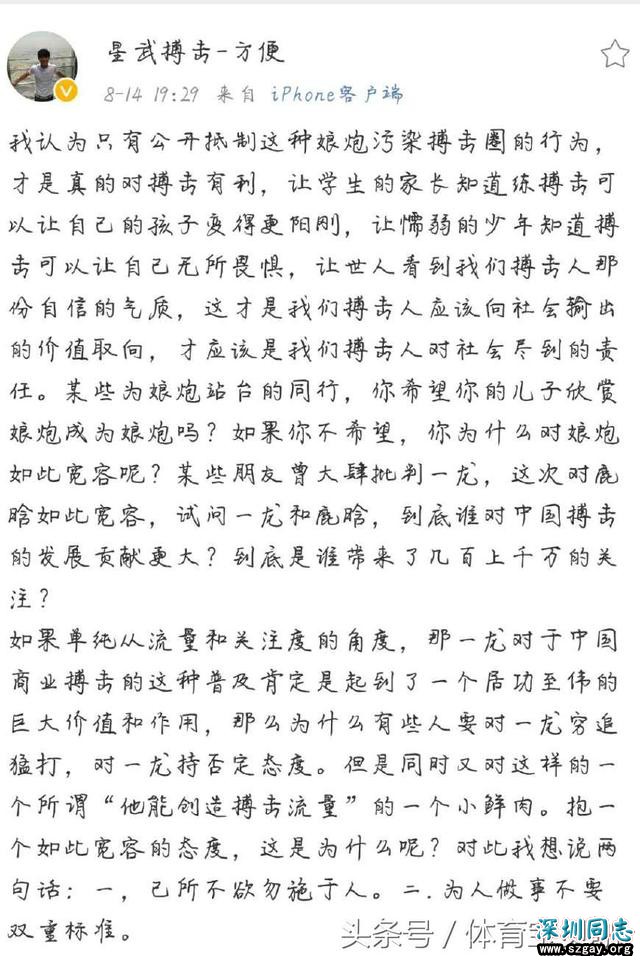 星武搏击-方便
8-14 19:29 来自 iPhone客户端
我认为只有公开抵制这种娘炮污染搏击圈的行为，
才是真的对搏击有利，让学生的家长知道练搏击可
以让自己的孩子变得更阳刚，让懦弱的少年知道搏
击可以让自己无所畏惧，让世人看到我们搏击人那
份自信的气质，这才是我们搏击人应该向社会输出
的价值取向，才应该是我们搏击人对社会尽到的责
任。某些为娘炮站台的同行，你希望你的儿子欣赏
娘炮成为娘炮吗？如果你不希望，你为什么对娘炮
如此宽容呢？某些朋友曾大肆批判一龙，这次对鹿
晗如此宽容，试问一龙和鹿晗，到底谁对中国搏击
的发展贡献更大？到底是谁带来了几百上千万的关
注？
如果单纯从流量和关注度的角度，那一龙对于中国
商业搏击的这种普及肯定是起到了一个居功至伟的
巨大价值和作用，那么为什么有些人要对一龙穷追
猛打，对一龙持否定态度。但是同时又对这样的一
个所谓“他能创造搏击流量”的一个小鲜肉。抱一
个如此宽容的态度，这是为什么呢？对此我想说两
句话：一，己所不欲勿施于人。二.为人做事不要
双重标准。
头条号／体育
深圳同志
www.szgay.org